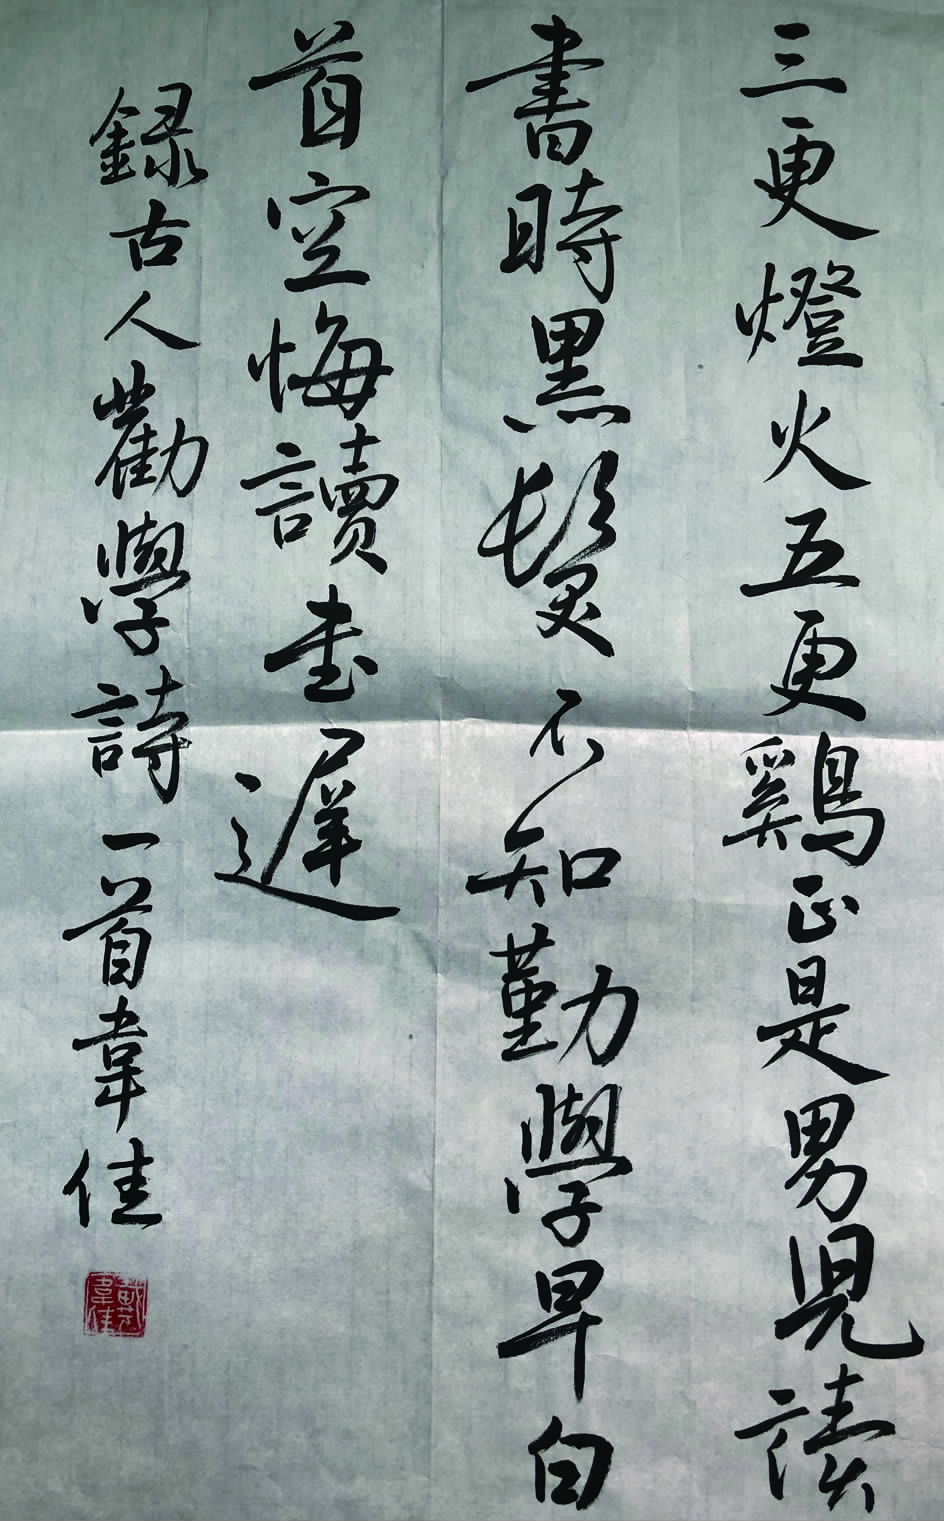 三更燈火五更鷄正是男兒讀
書時黑髮不知勤學早白
首空悔讀書遲
録古人勸學詩一首韋佳
戴韋佳